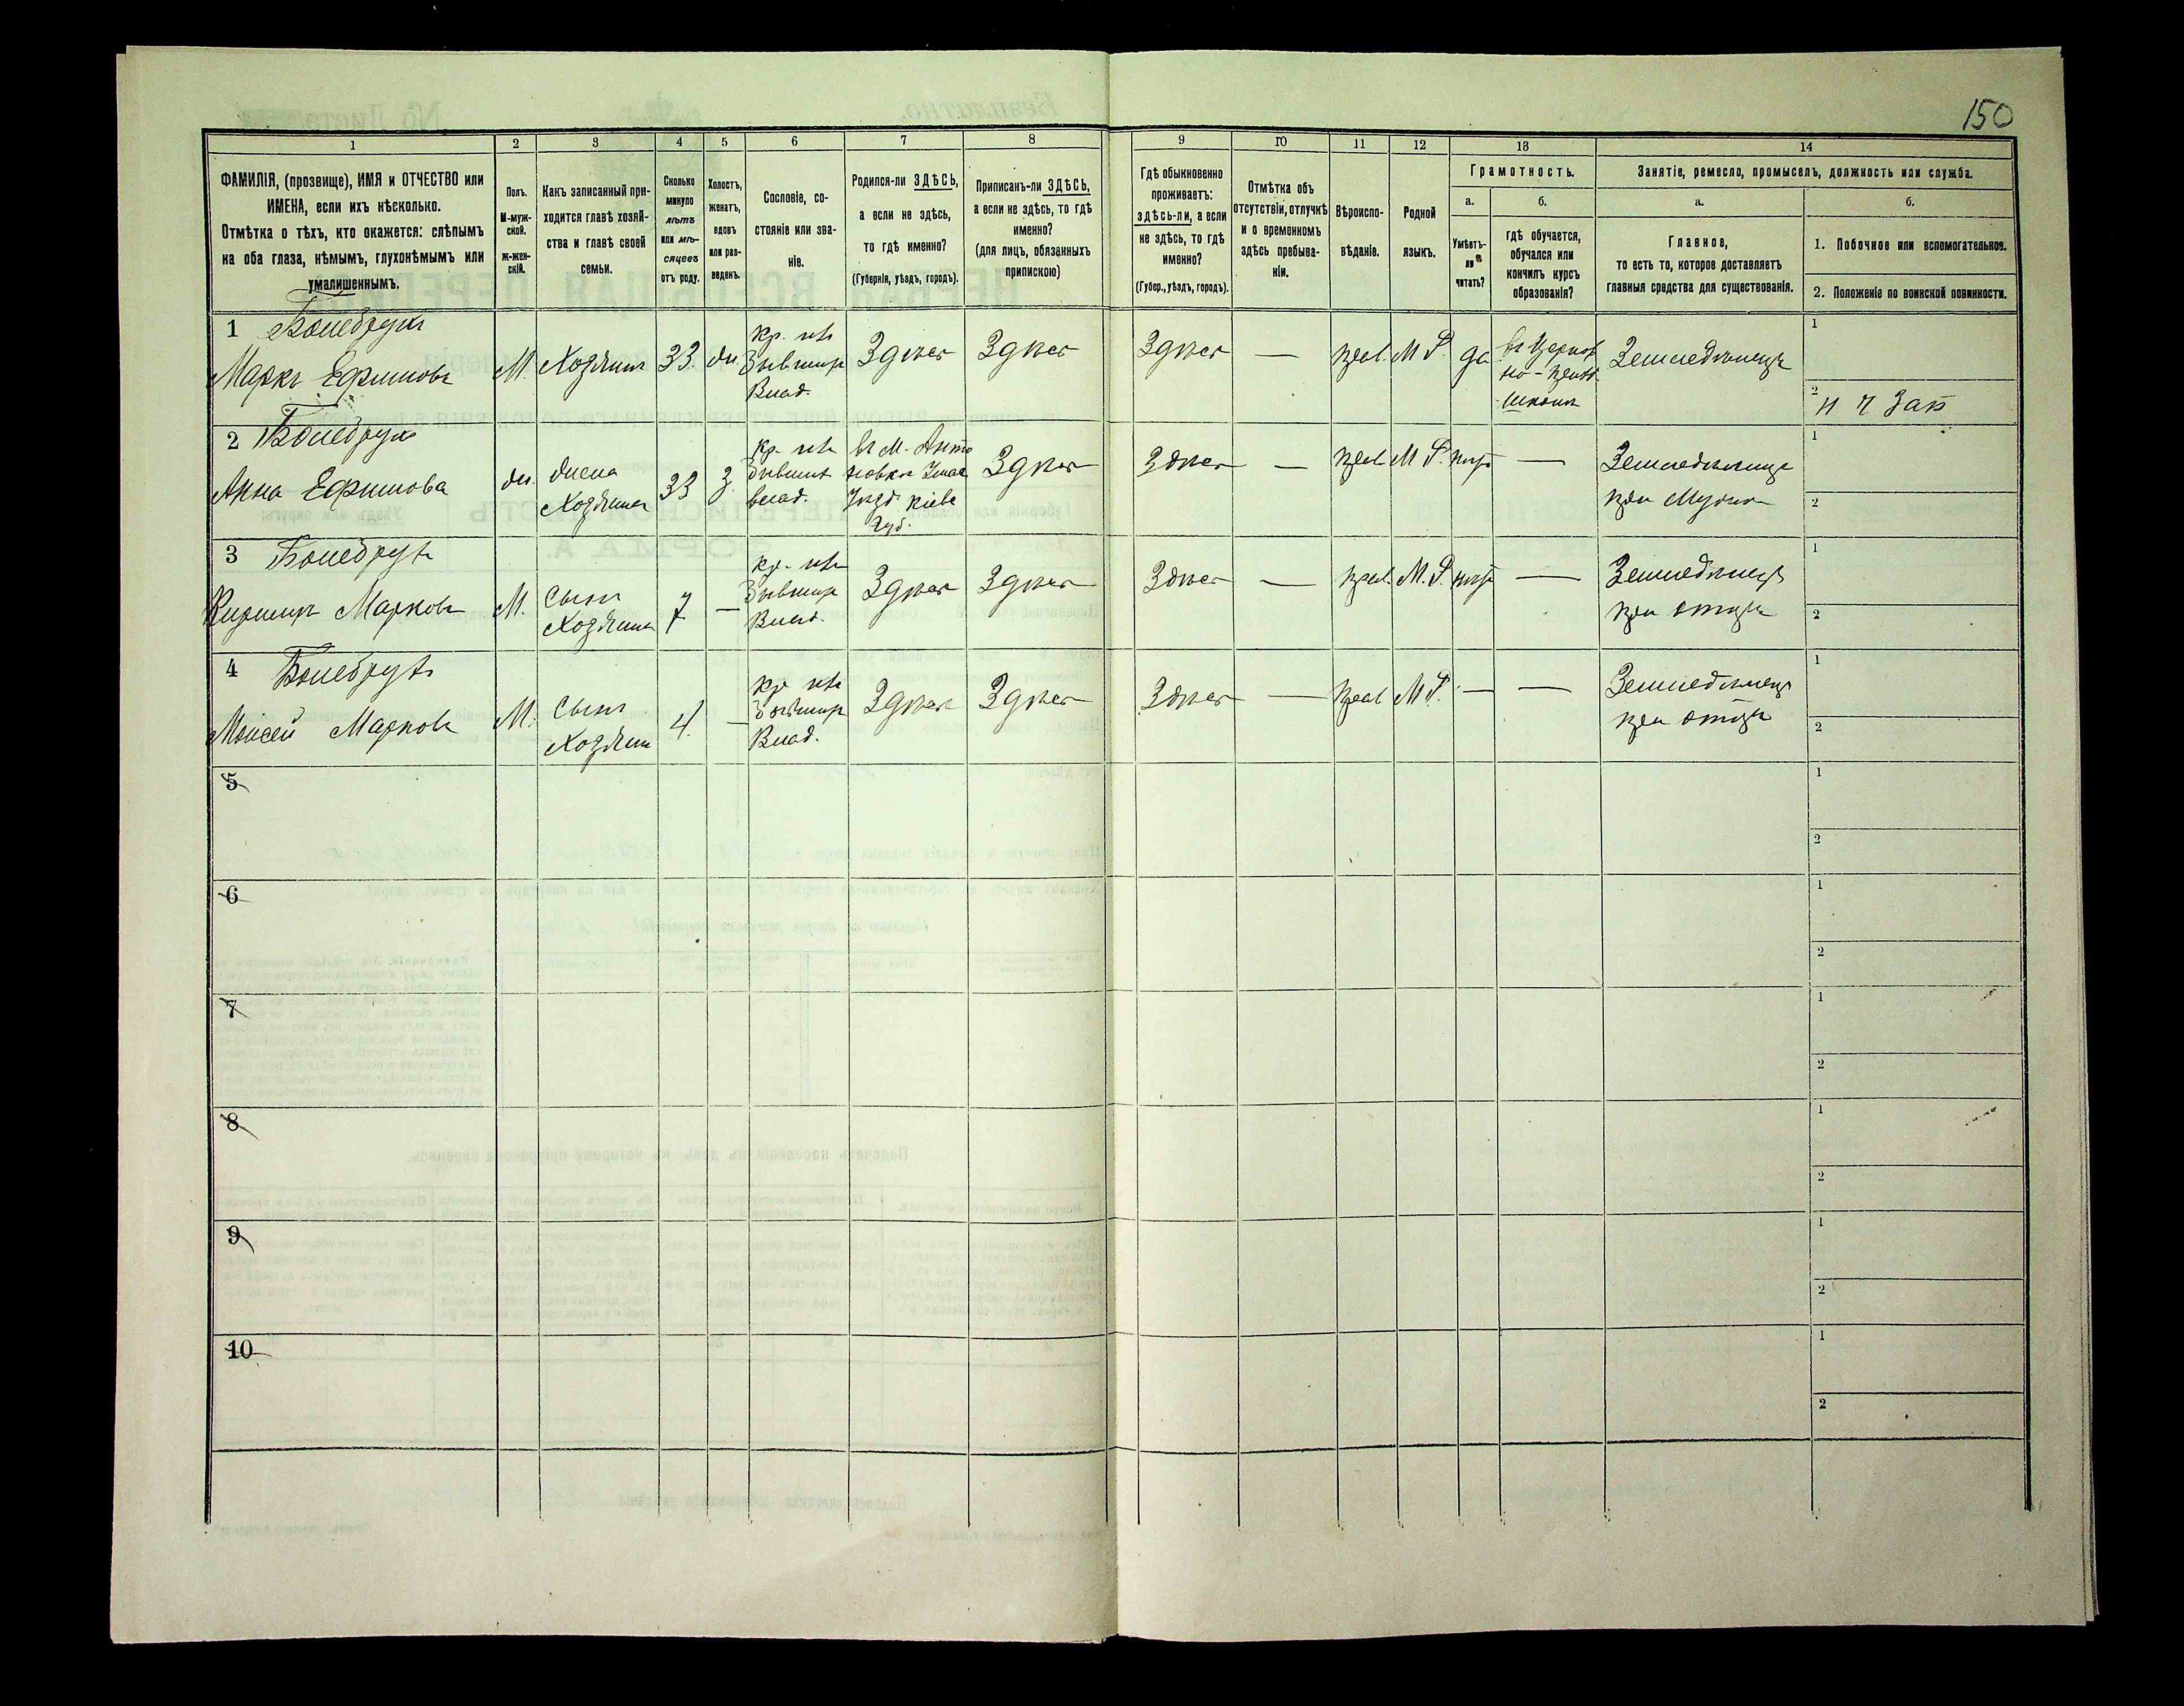 150
1
2
3
4
5
6
7
8
9
10
11
12
13
14
ФАМИЛІЯ, (прозвище), ИМЯ и ОТЧЕСТВО или
ИМЕНА, если ихъ нѣсколько.
Отмѣтка о тѣхъ, кто окажется: слѣпымъ
на оба глаза, нѣмымъ, глухонѣмымъ или
умалишеннымъ.
Полъ.
М-муж-
ской.
ж-жен-
скій.
Какъ записанный при-
ходится главѣ хозяй-
ства и главѣ своей
семьи.
Сколько
минуло
лѣтъ
или мѣ-
сяцевъ
отъ роду.
Холостъ,
женатъ,
вдовъ
или раз-
веденъ.
Сословіе, со-
стояніе или зва-
ніе.
Родился-ли ЗДѢСЬ,
а если не здѣсь,
то гдѣ именно?
(Губернія, уѣздъ, городъ).
Приписанъ-ли ЗДѢСЬ,
а если не здѣсь, то гдѣ
именно?
(для лицъ, обязанныхъ
припискою)
Гдѣ обыкновенно
проживаетъ:
здѣсь-ли, а если
не здѣсь, то гдѣ
именно?
(Губер., уѣздъ, городъ).
Отмѣтка объ
отсутствіи, отлучкѣ
и о временномъ
здѣсь пребыва-
ніи.
Вѣроиспо-
вѣданіе.
Родной
языкъ.
Грамотность.
а.
Умѣетъ-
ли
читать?
б.
гдѣ обучается,
обучался или
кончилъ курсъ
образованія?
Занятіе, ремесло, промыселъ, должность или служба.
а.
Главное,
то есть то, которое доставляетъ
главныя средства для существованія.
б.
1. Побочное или вспомогательное.
2. Положеніе по воинской повинности.
1
Маркъ Ефимовъ
М.
Хозяинъ
33.
жн.
Кр. изъ
бывшихъ
Влад.
Здѣсь
Здѣсь
Здѣсь
—
прав.
М Р.
да
въ церков
но-прих
школѣ
Земледѣлецъ
1
2
2
Анна Ефимова
жн.
жена
Хозяина
33
З.
Кр. изъ
бывших
влад.
Уѣзд. Кіев
губ.
Здѣсь
Здѣсь
—
прав
М Р.
нѣтъ
—
при мужѣ
1
2
3
Кириллъ Марковъ
М.
Сынъ
Хозяина
7
—
Кр. изъ
бывшихъ
Влад.
Здѣсь
Здѣсь
Здѣсь
—
прав.
М. Р.
нѣтъ
—
Земледѣлецъ
при отцѣ
1
2
4
Моисей Марковъ
М.
Сынъ
Хозяина
4.
—
Кр изъ
бывшихъ
Влад.
Здѣсь
Здѣсь
Здѣсь
—
прав
М Р.
—
—
Земледѣлецъ
при отцѣ
1
2
5
1
2
6
1
2
7
1
2
8
1
2
9
1
2
10
1
2